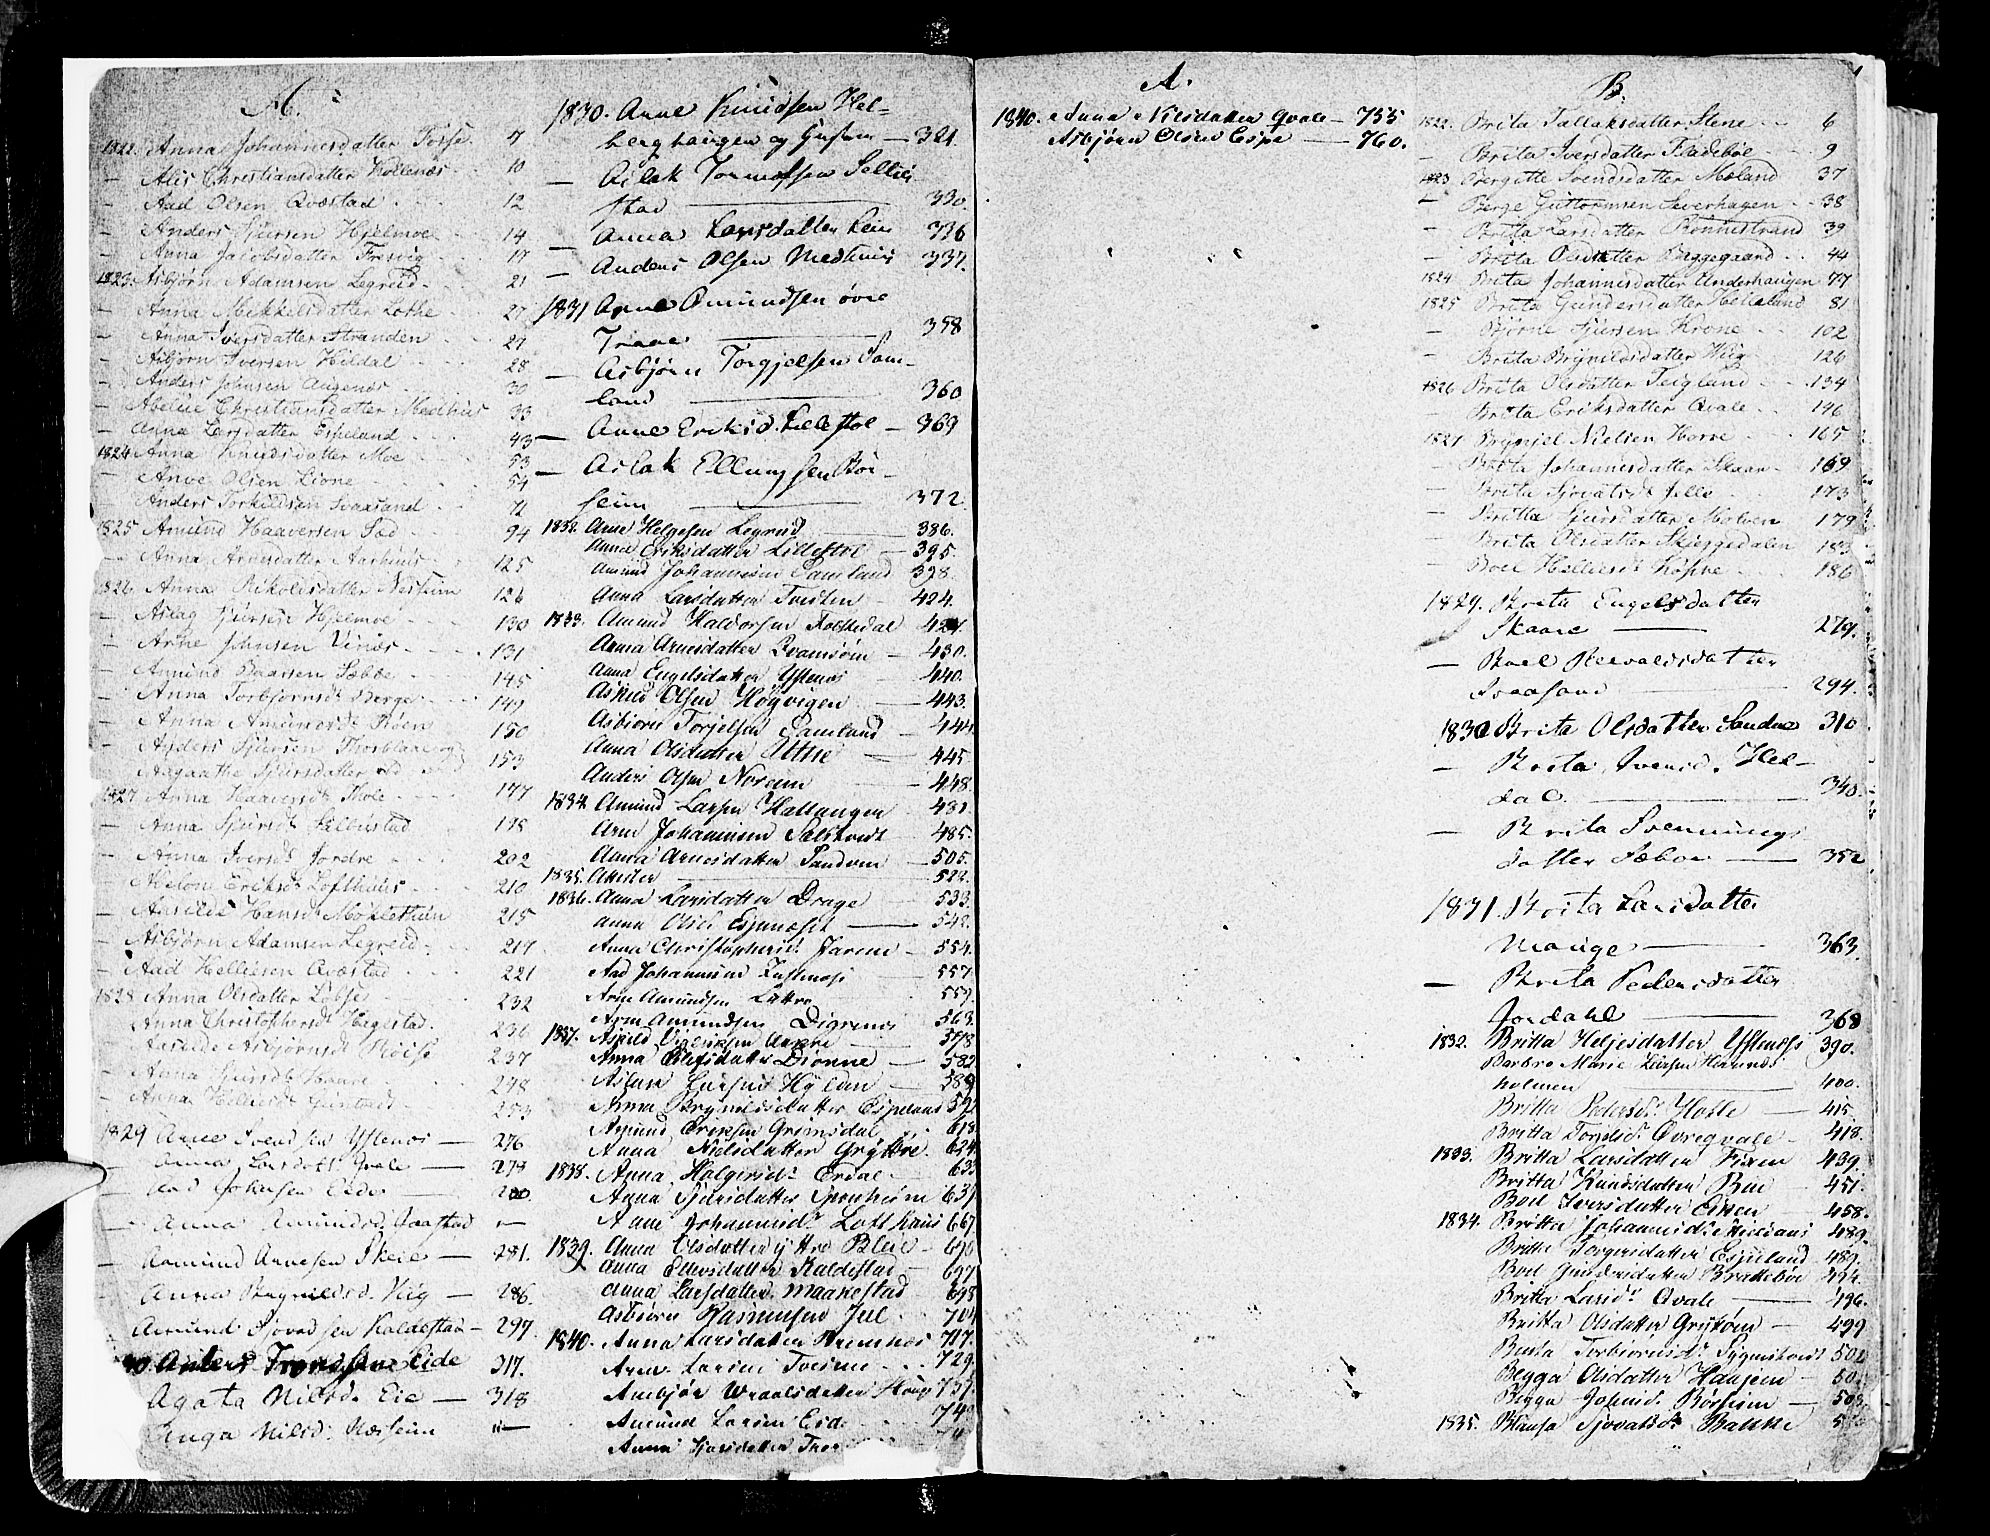 A.
1822. Anna Johannesdatter Fosse 7
— Alis Christiansdatter Kollenæs 10
— Aad Olsen Qvæstad 12
— Anders Sjursen Hjelmoe 14
— Anna Jacobsdatter Fresvig 17
1823. Asbjørn Adamsen Legreid 21
— Anna Mikkelsdatter Lothe 27
— Anna Iversdatter Stranden 27
— Asbjørn Iversen Hildal 28
— Anders Johnsen Augenæs 30
— Abelüe Christiansdatter Medhuus 33
— Anna Larsdatter Espeland 43
1824 Anna Knudsdatter Moe 53
— Anve Olsen Lione 54
— Anders Torkildsen Svaasand 71
1825 Amund Haaversen Sæd 94
— Anna Arnesdatter Aarhuus 125
1826 Anna Nikolisdatter Nestuun 126
— Aslag Sjursen Hjelmoe 130
— Arne Johnsen Vinæs 131
— Amund Baarsen Sæbbe 145
— Anna Torbjørnsd. Berge 149
— Anna Amundsd. Røen 150
— Anders Sjursen 153
— Aagaathe Sjursdatter
1827 Anna Haaversd. Mole 177
— Anna Sjursd. Sælbustad 198
— Anna Iversd. Jordre 202
— Abelone Eriksd. Lofthuus 210
— Aasilde Hansd. Mokletuun 215
— Asbjørn Adamsen Legreid 217
— Aad Helliesen Qvæstad 221
1828 Anna Olsdatter Løbse 232
— Anna Christophersd. Hagestad 236
— Aasilde Asbjørnsd. Røise 237
— Anna Sjursd. Haave 248
— Anna Helliesd. 253
1829 Arne Svendsen Ystenæs — 276
— Anna Larsdatt. Qvale — 279
— Aad Johnsen Eide — 280
— Anna Amundsd. Qvæstad „—
— Aamund Arnesen Skeie — 281.
Anna Brynildsd. Viig — 286.
Aamund Sjovadsen Kaldestad — 297.
30 Anders Tronssen Eide 317.
Agata Nilsd. Eie — 318
Anga Nilsd. Næsheim „—
1830. Arne Knudsen Hel-
berghaugen og Gustun — 321.
— Aslak Tormodsen Sellei
stad — 330
— Anna Larsdatter Lein 336
— Anders Olsen Medhuus 337.
1831 Arne Omundsen øvre
Traae — 358
— Asbjørn Torgjelsen Sam-
land — 360
— Anne Eriksd. Lillestøl — 369
— Aslak Ellungsen Bør-
seim — 372.
1832. Arne Helgesen Legreid — 386.
Anna Eriksdatter Lillestøl — 395.
Amund Johannesen Samland 398.
Anna Larsdatter Tveisten 424.
1833. Amund Haldorsen 427.
Anna Arnesdatter Qvamsøen — 430.
Anna Engelsdatter Ystenæs 440.
Askild Olsen Høyvigen — 443.
Asbiørn Torjelsen Samland — 444.
Anna Olsdatter Uttne — 445
Anders Olsen Noreim — 448.
1834. Amund Larsen Haltangen — 481.
Arne Johannesen Sætstvedt — 485.
Anna Arnesdatter Sandven — 505.
1835. Attester — 522.
1836. Anna Larsdatter Drage — 533.
Anna Olsd. Espenæset — 542.
Anna Christophersd. Jareim — 554.
Aad Johannesen — 557.
Arne Amundsen Lyttre 559.
Arne Amundsen Digrenæs 563.
1837. Askild 578
Anna Olufsdatter Djønne — 582
Aslak Larsen Hylden — 589
Anna Brynildsdatter Espeland 592
Amund Eriksen Grimsdal 618.
Anna Nielsdatter Gryttre 624
1838. Anna Holgersd. Erdal — 63
Anna Sjursdatter Sponheim 637
Anne Johannesd. Lofthuus 667
1839. Anna Olsdatter yttre Bleie — 696
Anna Ellevsdatter Kaldestad — 697
Anna Larsdatter Maakestad 698
Asbiørn Rasmusen Jul 704
1840. Anna Larsdatter Bremnæs 717.
Arne Larsen Tveisme 729.
Anbjør Wraalsdatter Houg 737.
Amund Larsen Eid 74
Anna Sjursdatter
A.
1840. Anna Nilsdatter Qvale — 755
Asbjørn Olsen Espe — 760.
B.
1822. Brita Tallaksdatter Stene 6
— Brita Iversdatter Fladebøe 9
1823 Bergitte Svendsdatter Mæland 37
— Berge Guttormsen Severhagen 38
— Brita Larsdatter Rønnestrand 39
— Brita Olsdatter Byggegaard 44
1824 Brita Johannisdatter Underhaugen 77
1825 Brita Gundersdatter Helleland 81
— Bjørne Sjursen Krone 102
— Brita Brynildsdatter Wiig 126
1826 Brita Olsdatter Teigland 134
— Brita Eriksdatter Qvale 146
1827 Brynjel Nielsen Horre 165
— Brita Johannesdatter Skaar 169
— Brita Sjovatsd. Jelle 173
— Britta Sjursdatter Molven 179
— Brita Olsdatter Skjeggedalen 183
— Boel Helliesd. Løsnæ 186
1829. Brita Engelsdatter
Skaare — 279.
— Boel Reevaldsdatter
Svaasand — 294.
1830 Brita Olsdatter Sandnæ 310
— Brita Iversd. Hel-
dal. — 340.
— Brita Svennings
datter Sæboe — 352
1831. Brita Larsdatter
Mauge — 363.
— Brita Pedersdatter
Jordahl — 368
1832. Britta Heljesdatter Ystenæss 390.
Barbro Marie Larsen Hamnds
holmen — 400.
Britta Pedersd. Holte — 415.
Britta Torjelsd. Øvreqvale — 418.
1833. Britta Larsdatter Fixen — 439.
Britta Knudsdatter Bue — 451.
Boel Iversdatter Eitnen — 458.
1834. Britta Johannesd. 489.
Britta Torgersdatter Espeland — 489.
Boel Gundersdatter Brattebøe 494.
Britta Larsd. Qvale — 496.
Britta Olsdatter Grytøen — 499
Brita Torbiørnsd. 501
Begga Olsdatter Haaheim — 50
Begga Johnsd. Børsheim — 503
1835. Sjovatsd. Bakke 5